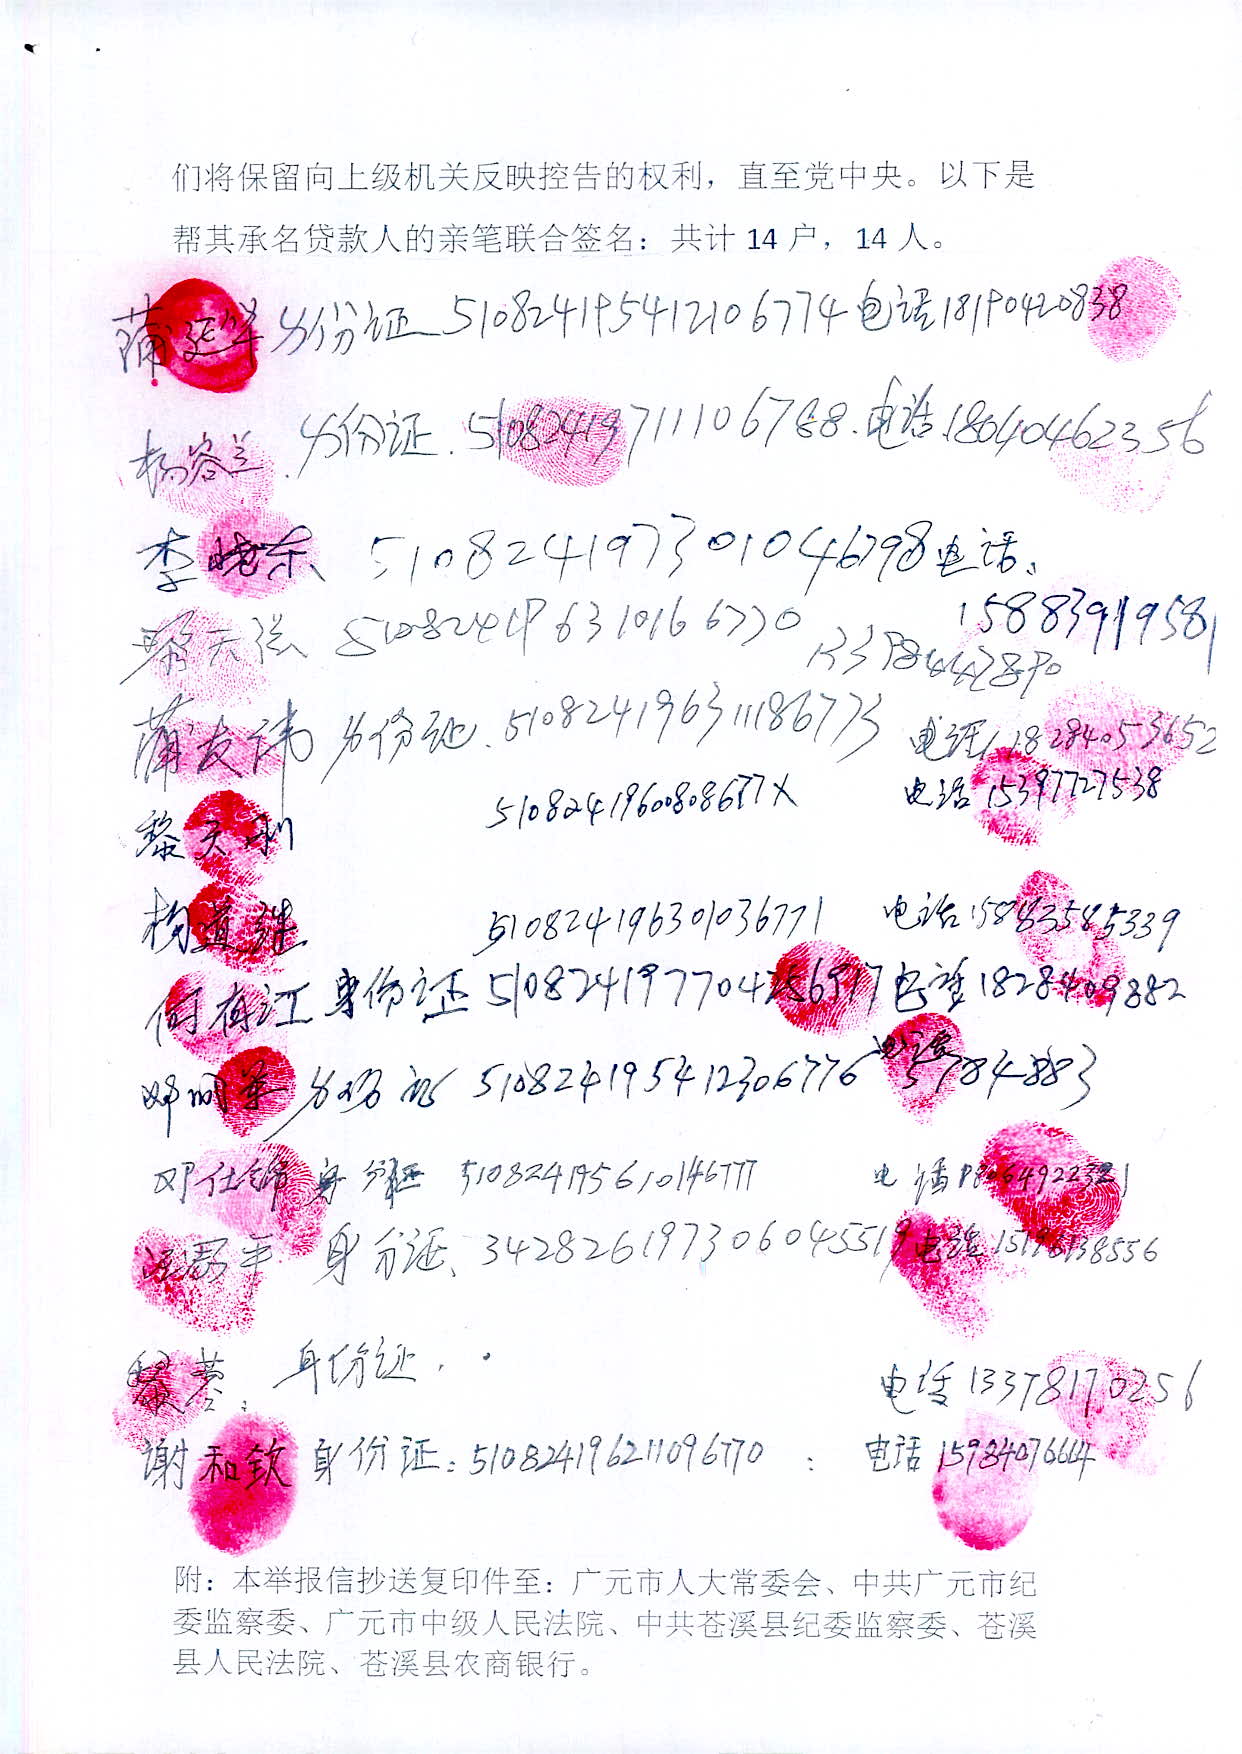 们将保留向上级机关反映控告的权利，直至党中央。以下是
帮其承名贷款人的亲笔联合签名：共计 14 户，14 人。
蒲延华 身份证 510824195412106774 电话 18190420838
杨容兰 身份证 510824197111106788 电话 18040462356
李晓东 510824197301046798 电话
15883911958
天 510824196310166770
蒲友 身份证 510824196311186773 电话 18284053652
黎天利 51082419600808677X 电话 15397727538
杨 510824196301036771 电话 15883585339
何有江 身份证 510824197704256917 电话 18284009882
邓明 身份证 510824195412306776 电话 5784883
邓仕 身份证 510824195610146777 电话
平 身份证 342826197306045519 电话
身份证 电话 13378170256
谢和钦 身份证：510824196211096770 : 电话 15984076664
附：本举报信抄送复印件至：广元市人大常委会、中共广元市纪
委监察委、广元市中级人民法院、中共苍溪县纪委监察委、苍溪
县人民法院、苍溪县农商银行。